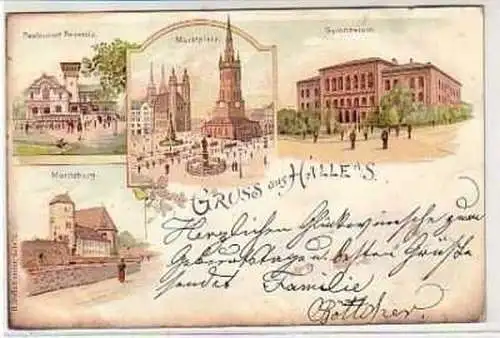 Restaurant
Marktplatz.
Gymnasium.
Moritzburg.
Gruss aus Halle a/S.
Herzlichen Glückwünsche zum
Geburtstage und besten Grüße
sendet Familie
Böttcher.